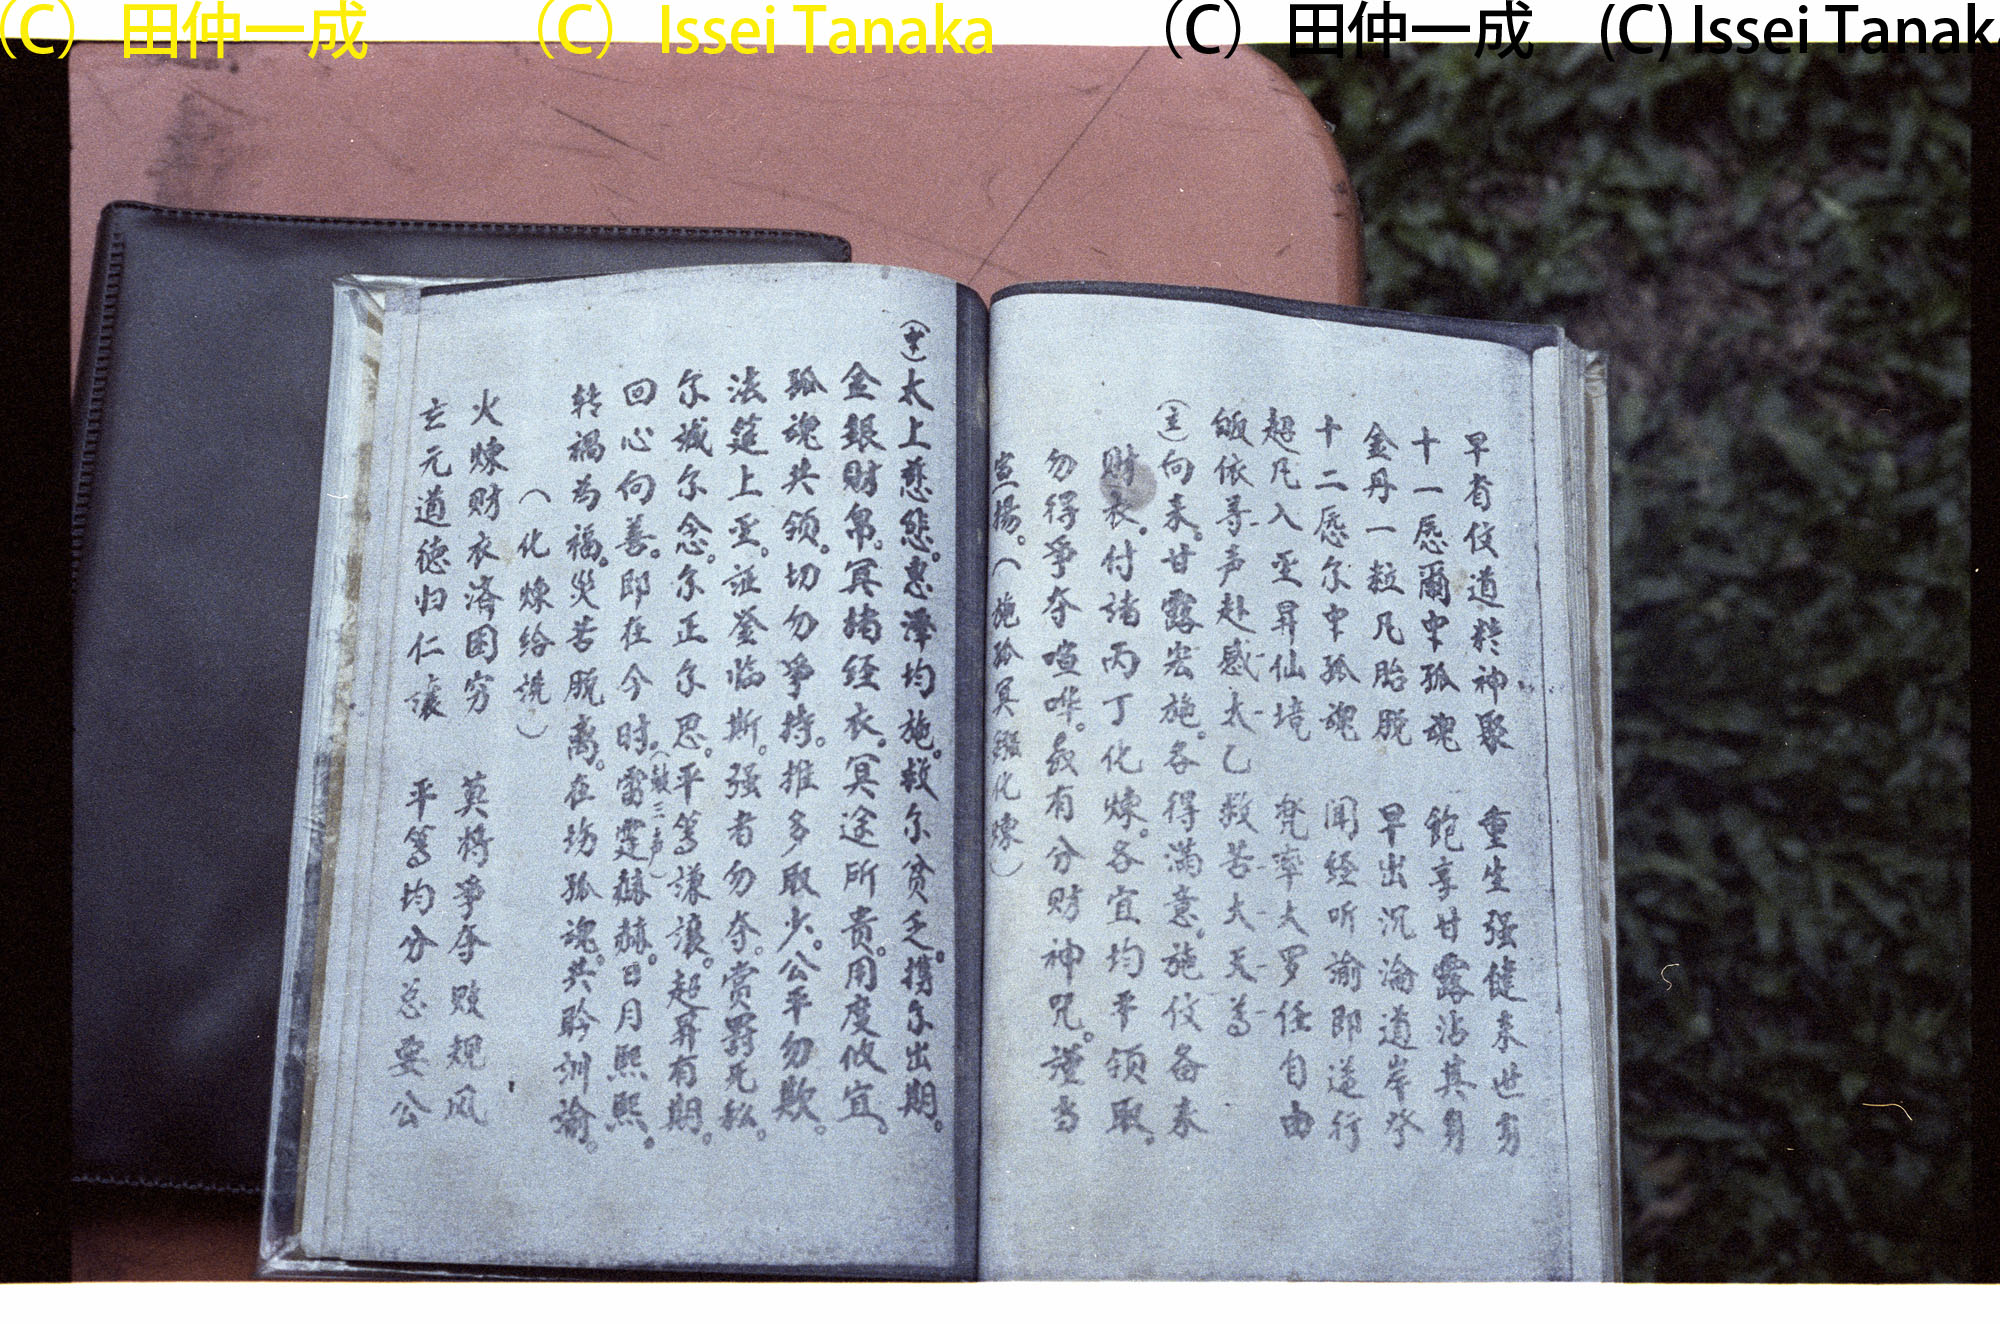 (C) 田仲一成 (C) Issei Tanaka (C) 田仲一成 (C) Issei Tanaka
早省伎道於神聚 重生强健来世男
十一愿爾中孤魂 飽享甘露沾其身
金丹一粒凡胎脱 早出沉淪道岸登
十二愿尔中孤魂 闻经听谕即送行
超凡入圣昇仙境 兜率大罗任自由
皈依寻声赴感太乙救苦大天尊
(主)向来。甘露宏施。各得满意。施伎备来
财衣。付诸丙丁化煉。各宜均平领取。
勿得爭夺喧哗。最有分财神咒。謹当
宣揚。(施孤冥鏹化煉)
太上慈悲。惠泽均施。救尔贫乏。携尔出期。
金銀财帛。冥鏹经衣。冥途所貴。用度攸宜。
孤魂共领。切勿爭持。推多取少。公平勿欺。
法筵上圣。证鉴临斯。强者勿夺。赏罰无私。
尔减尔念。尔正尔思。平等谦讓。超昇有期。
回心向善。即在今时。(鼓三声)雷霆赫赫。日月熙熙。
转禍为福。災苦脱离。在场孤魂。共聆訓諭。
(化煉给洗)
火煉财衣济困穷 莫将爭夺败规风
玄元道德归仁讓 平等均分总要公